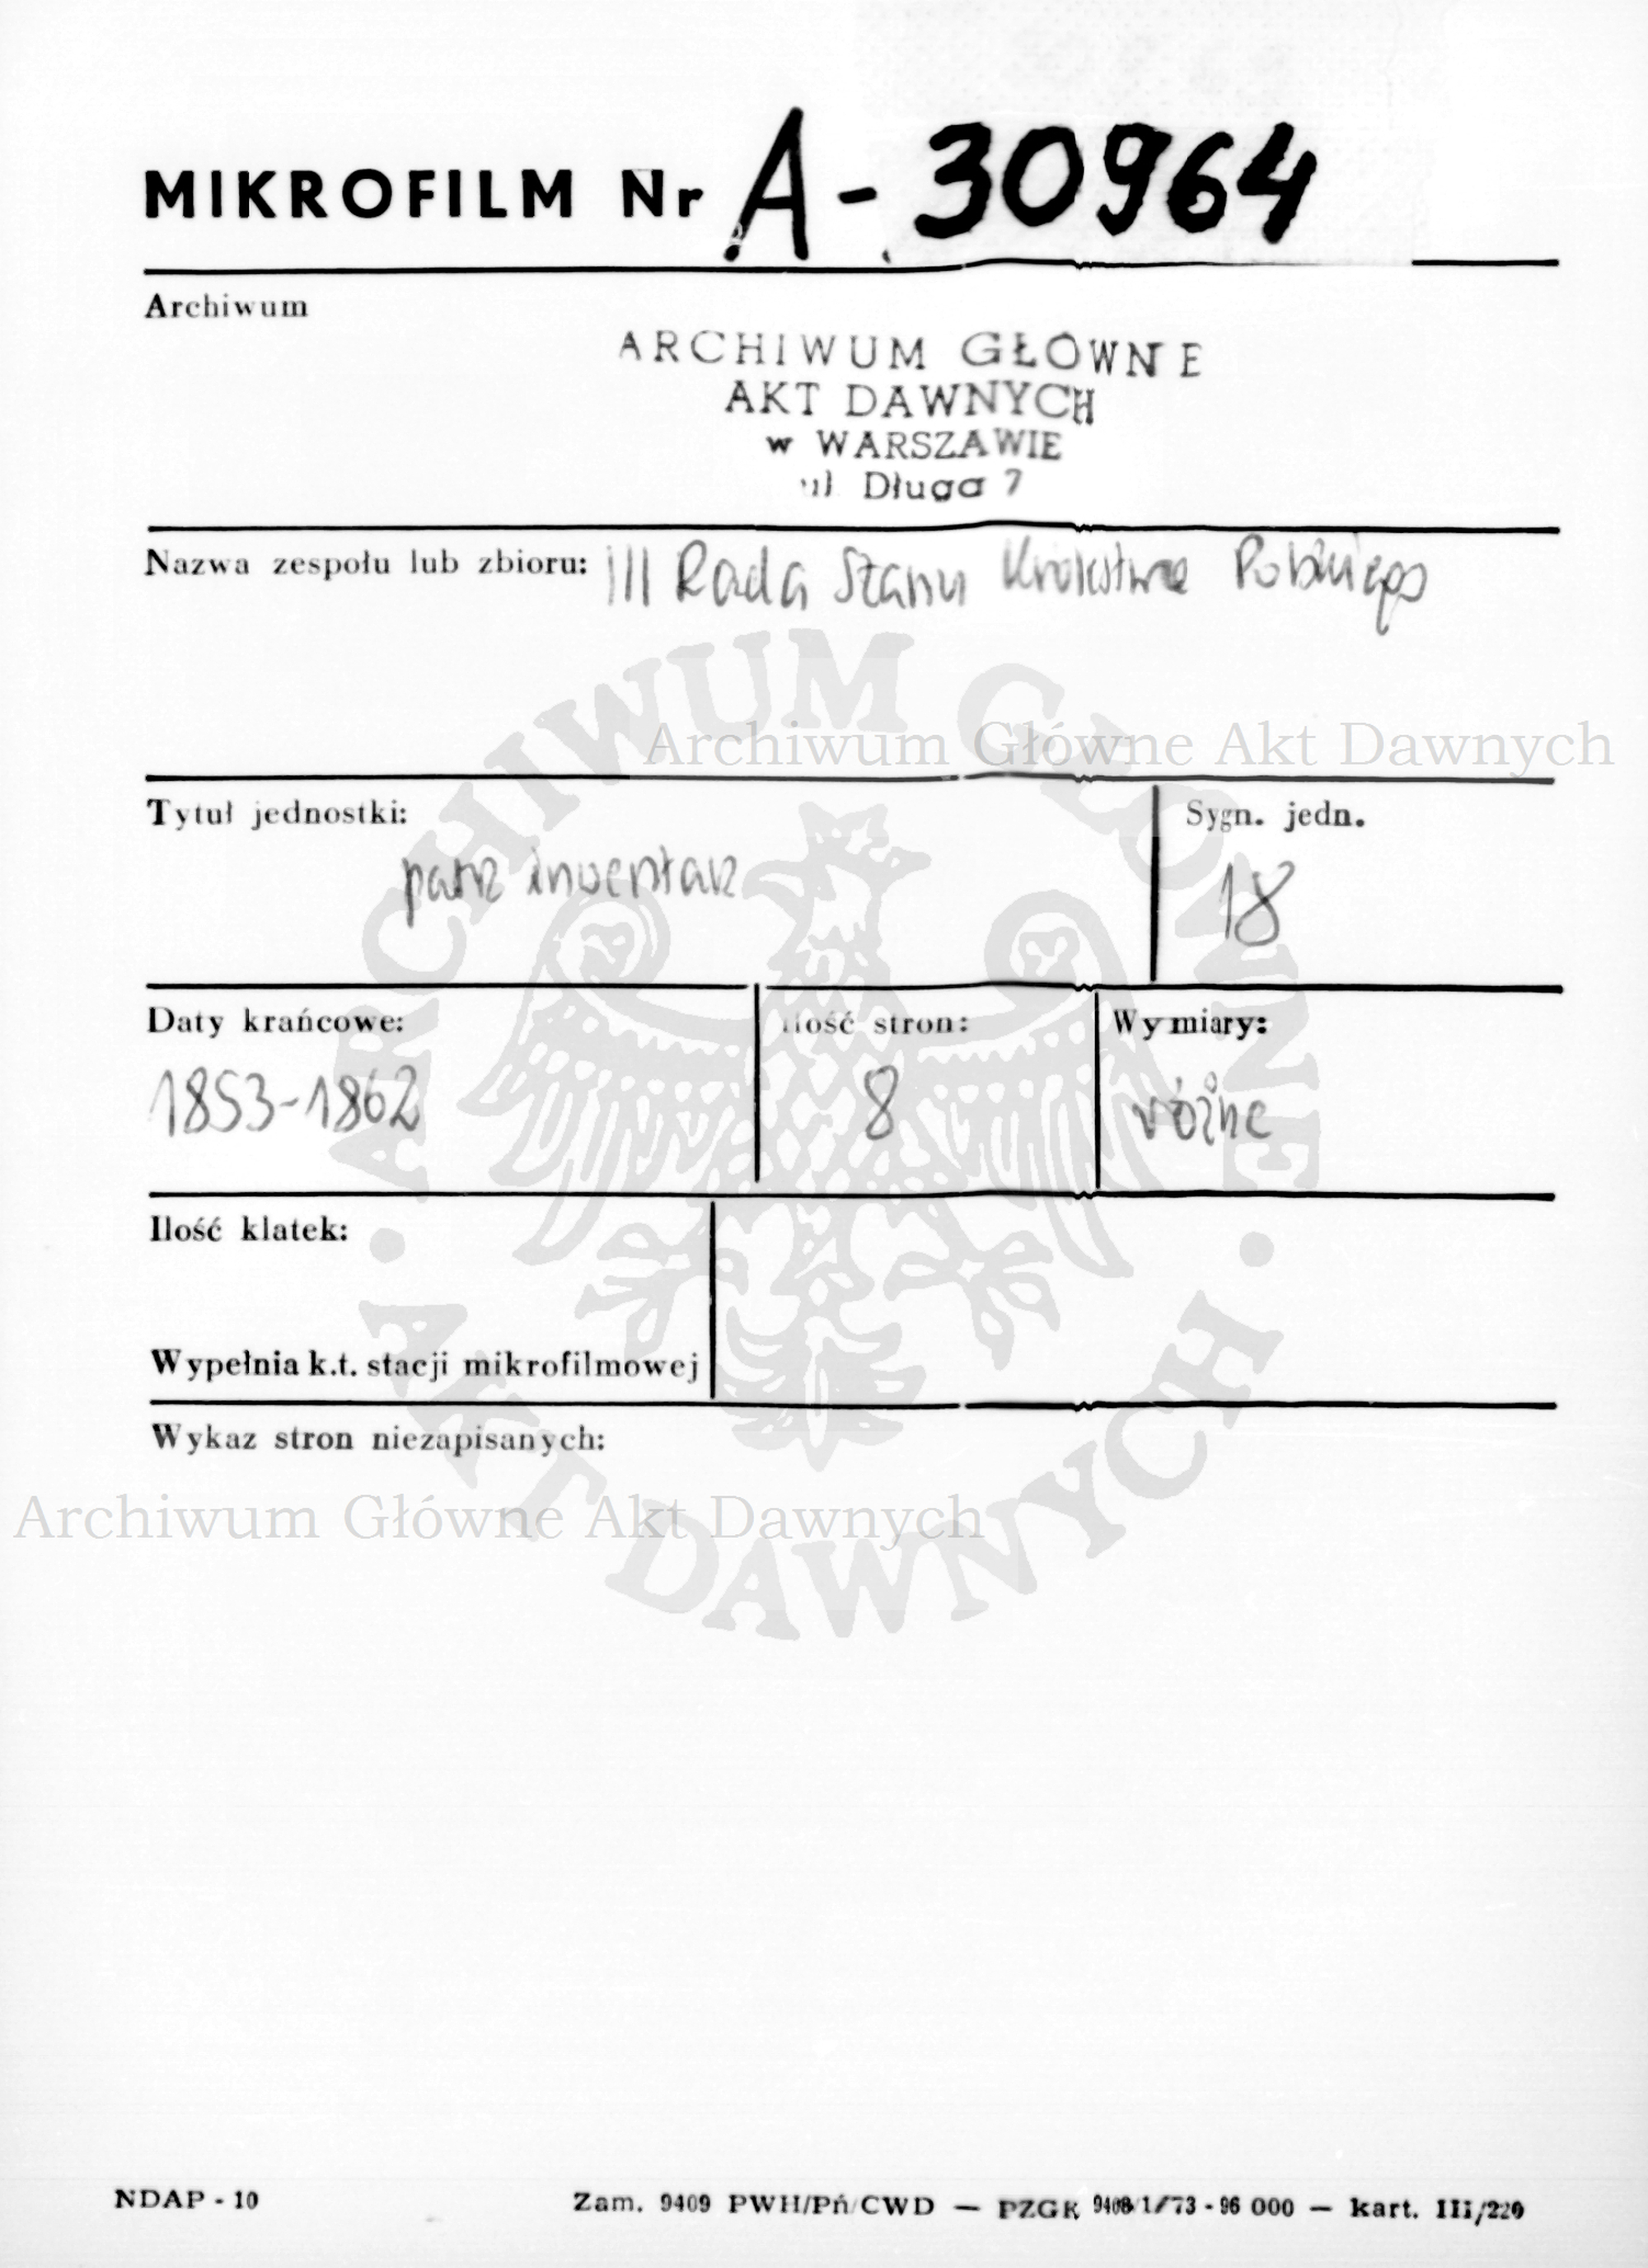 MIKROFILM Nr A - 30964
Archiwum
ARCHIWUM GŁÓWNE
AKT DAWNYCH
w WARSZAWIE
ul Długa 7
Nazwa zespołu lub zbioru: III Rada Stanu Królestwa Polskiego
Archiwum Główne Akt Dawnych
Tytuł jednostki:
Sygn. jedn.
patrz inwentarz
18
Daty krańcowe:
Ilość stron:
Wymiary:
1853-1862
8
różne
Ilość klatek:
Wypełnia k.t. stacji mikrofilmowej
Wykaz stron niezapisanych:
Archiwum Główne Akt Dawnych
ARCHIWUM GŁÓWNE
AKT DAWNYCH
NDAP - 10
Zam. 9409 PWH/Pń/CWD — PZGK 9408/1/73 - 96 000 — kart. III/220